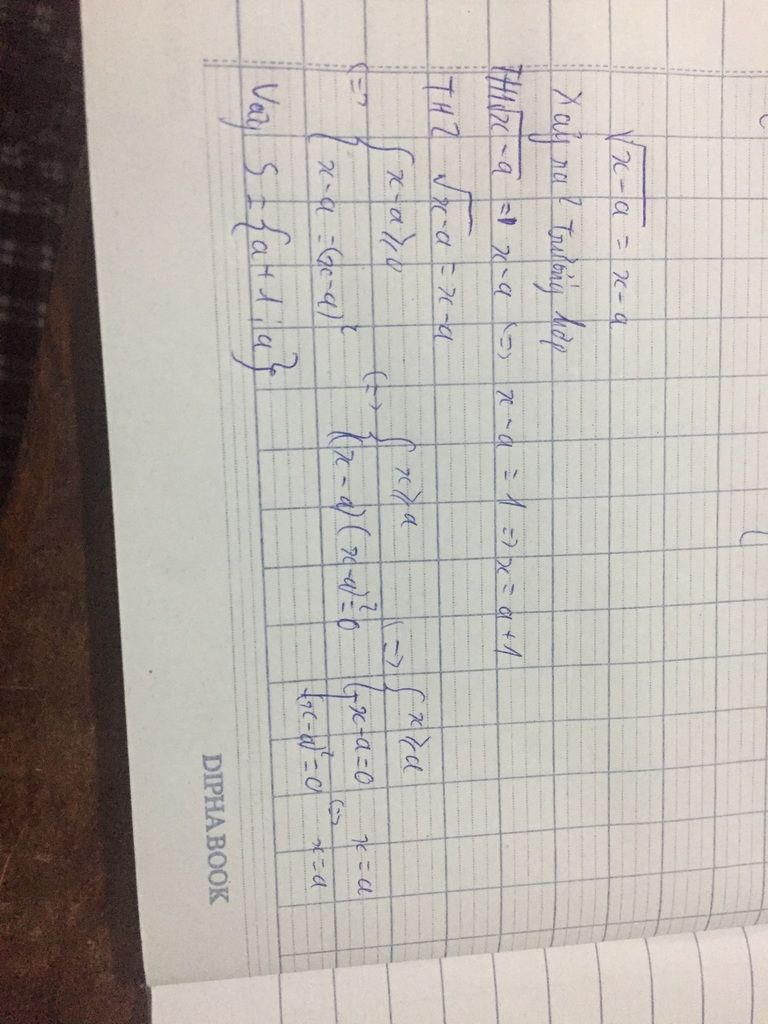 √x-a = x-a
Xảy ra 2 trường hợp
TH1 √x-a = x-a (=) x-a = 1 => x = a+1
TH2 √x-a = x-a
(=> { x-a ⩾ 0 (=> { x ⩾ a (=> { x ⩾ a
{ x-a = (x-a)² (x-a)(x-a)² = 0 [ x-a = 0 (=> x = a
(x-a)² = 0 x = a
Vậy S = {a+1; a}
DIPHABOOK